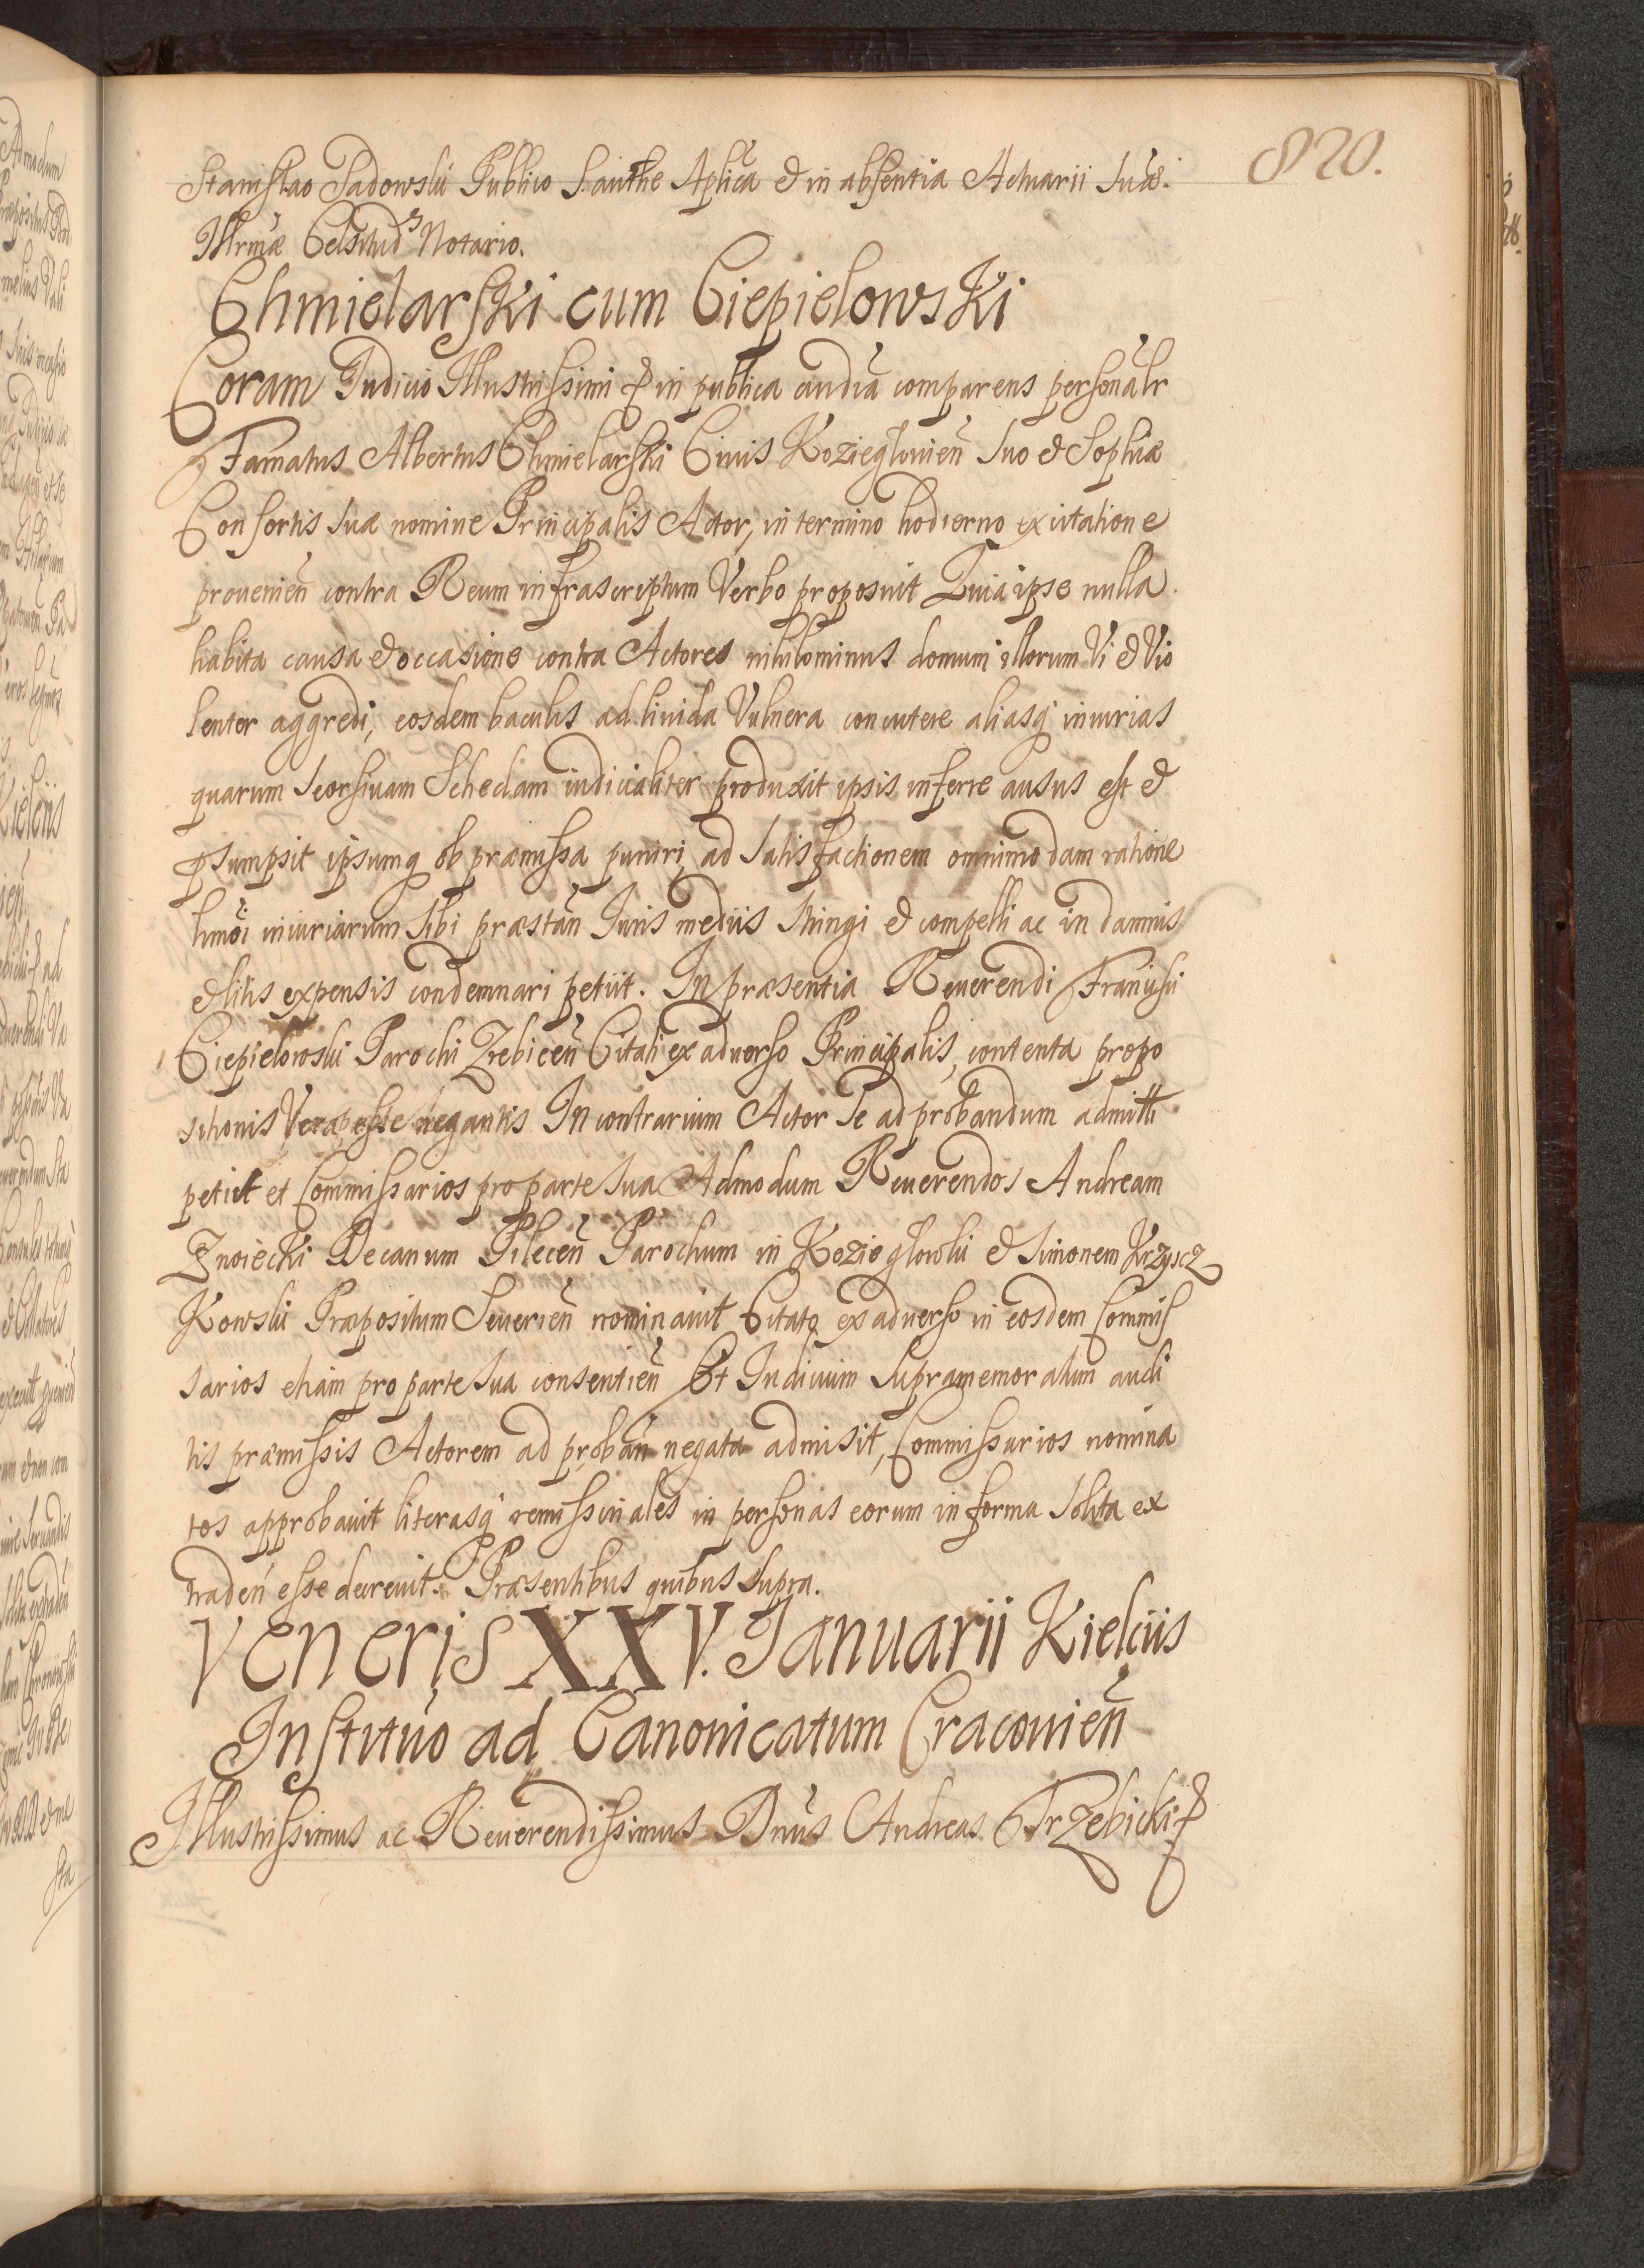 820.
Stanislao Sadowski Publico Sanctæ Aplica & in absentia Actuarii Suæ
Illrmæ Celsitud Notario.
Chmielarski cum Ciepielowski
Coram Judicio Illustrissimi & in publica audia comparens personalr
Famatus Albertus Chmielarski Civis Kozieglouien suo & Sophiæ
Consortis suæ nomine Principalis Actor, in termino hodierno ex citatione
prouenien contra Reum infrascriptum Verbo proposuit Quia ipse nulla
habita causa & occasione contra Actores nihilominus domum illorum Vi & Vio
lenter aggredi, eosdem baculis ad liuida Vulnera concutere aliasq iniurias
quarum seorsiuam Schedam iudicialiter produxit ipsis inferre ausus est &
psumpsit ipsumq ob præmissa puniri, ad satisfactionem omnimodam ratione
hmoi iniuriarum sibi præstan Juris mediis stringi & compelli ac in damnis
& litis expensis condemnari petiit. In præsentia Reuerendi Francisci
Ciepielowski Parochi Zrebicen Citati ex aduerso Principalis, contenta propo
sitionis Vera esse negantis In contrarium Actor se ad probandum admitti
petiit et Commissarios pro parte sua Admodum Reuerendos Andream
Znoiecki Decanum Pilecen Parochum in Kozieglowki & Simonem Krzycz
Kowski Præpositum Seuerien nominauit Citato ex aduerso in eosdem Commis
sarios etiam pro parte sua consentien Et Judicium supramemoratum audi
tis præmissis Actorem ad proban negata admisit, Commissarios nomina
tos approbauit literasq remissoriales in personas eorum in forma solita ex
traden esse decreuit. Præsentibus quibus supra.
Veneris XXV. Januarii Kielciis
Institutio ad Canonicatum Cracouien
Illustrissimus ac Reuerendissimus Dnus Andreas Trzebicki &